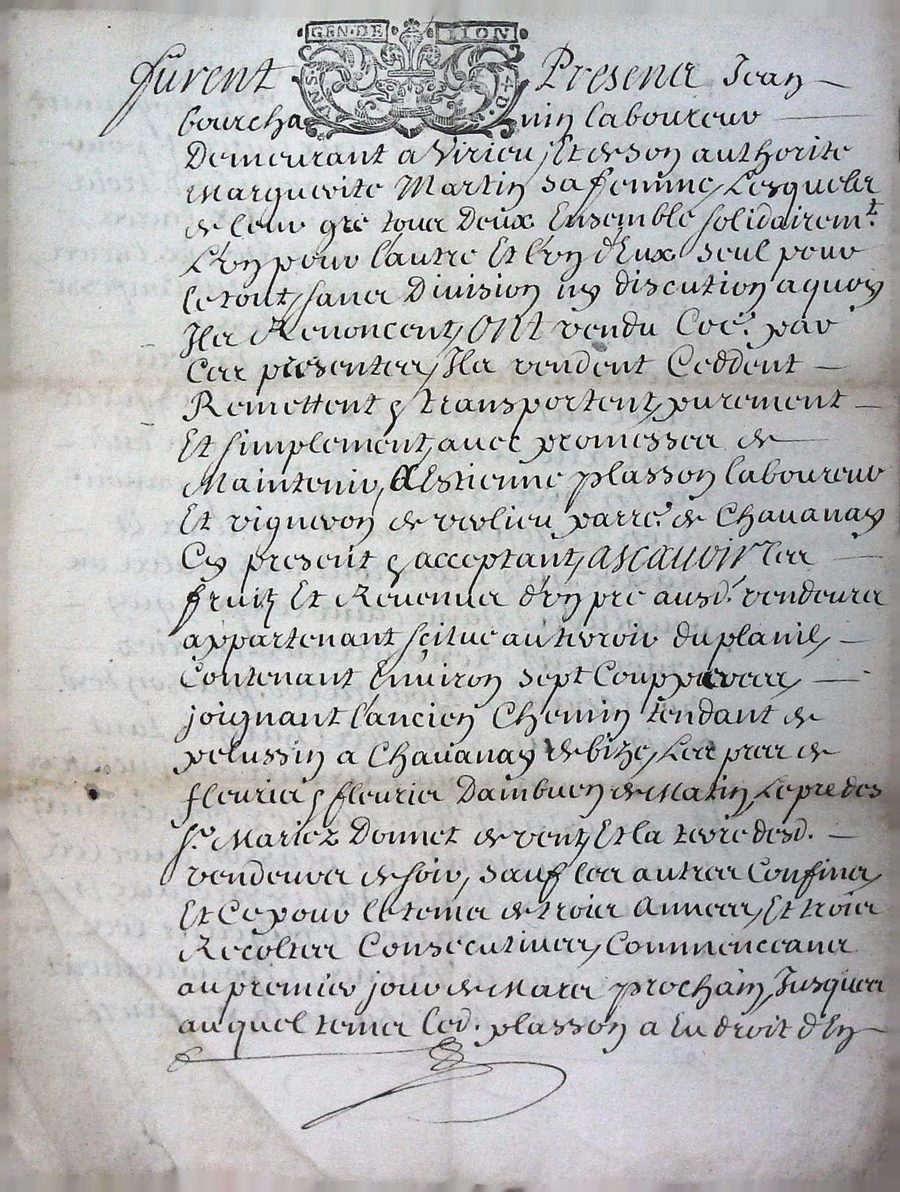 GEN·DE LION
furent Presens Jean
bourcha nin laboureur
Demeurant a Virieu, Et de son authorite
Marguerite Martin sa femme, Lesquels
de leur gré tous Deux Ensemble solidairemt.
L'vn pour lautre Et l'vn d'Eux seul pour
le tout, sans Division ny discution a quoy
Ils Renoncent, ONT vendu Coe. par
Ces presentes, Ils vendent Ceddent
Remettent & transportent, purement
Et simplement, auec promesses de
Maintenir, A Estienne plasson laboureur
Et vigneron de verlieu parre. de Chauanay
Cy present & acceptant, ascauoir les
fruitz Et Reuenus d'vn pre ausd. vendeurs
appartenant scitue au terroir du planil,
Contenant Enuiron sept Coupperees,
joignant l'ancien Chemin tendant de
pelussin a Chauanay de bize, Les pres de
fleurie & fleurie Dambuen de Matin, Le pre des
Sr. Mariez Donnet de vent, Et la terre desd.
vendeurs de soir, sauf les autres Confins,
Et Ce pour le tems de trois Annees, Et trois
Recoltes Consecutiues, Commenceans
au premier jour de Mars prochain, Jusques
au quel tems Led. plasson a Eu droit d'En